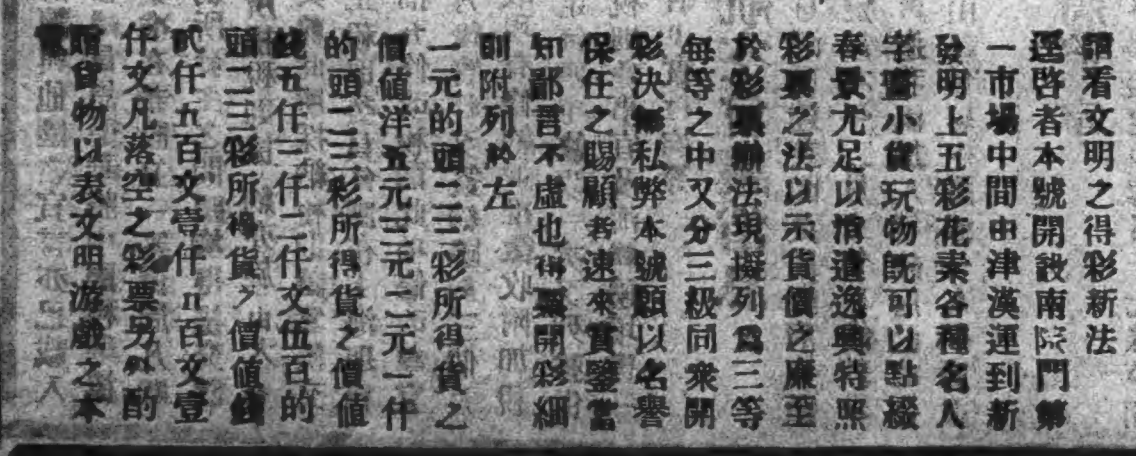 請看文明之得彩新法
逕啓者本號開設南院門第
一市場中間由津漢運到新
發明上五彩花素各種名人
字畫小貨玩物旣可以點綴
春景尤足以消遣逸興特照
彩票之法以示貨價之廉至
於彩票辦法現擬列爲三等
每等之中又分三級同衆開
彩決無私弊本號願以名譽
保任之賜顧者速來賞鑒當
知鄙言不虛也得票開彩細
則附列於左
一元的頭二三彩所得貨之
價值洋五元三元二元一仟
的頭二三彩所得貨之價值
錢五仟三仟二仟文伍百的
頭二三彩所得貨之價値錢
貳仟五百文壹仟五百文壹
仟文凡落空之彩票另外酌
贈貨物以表文明游戲之本